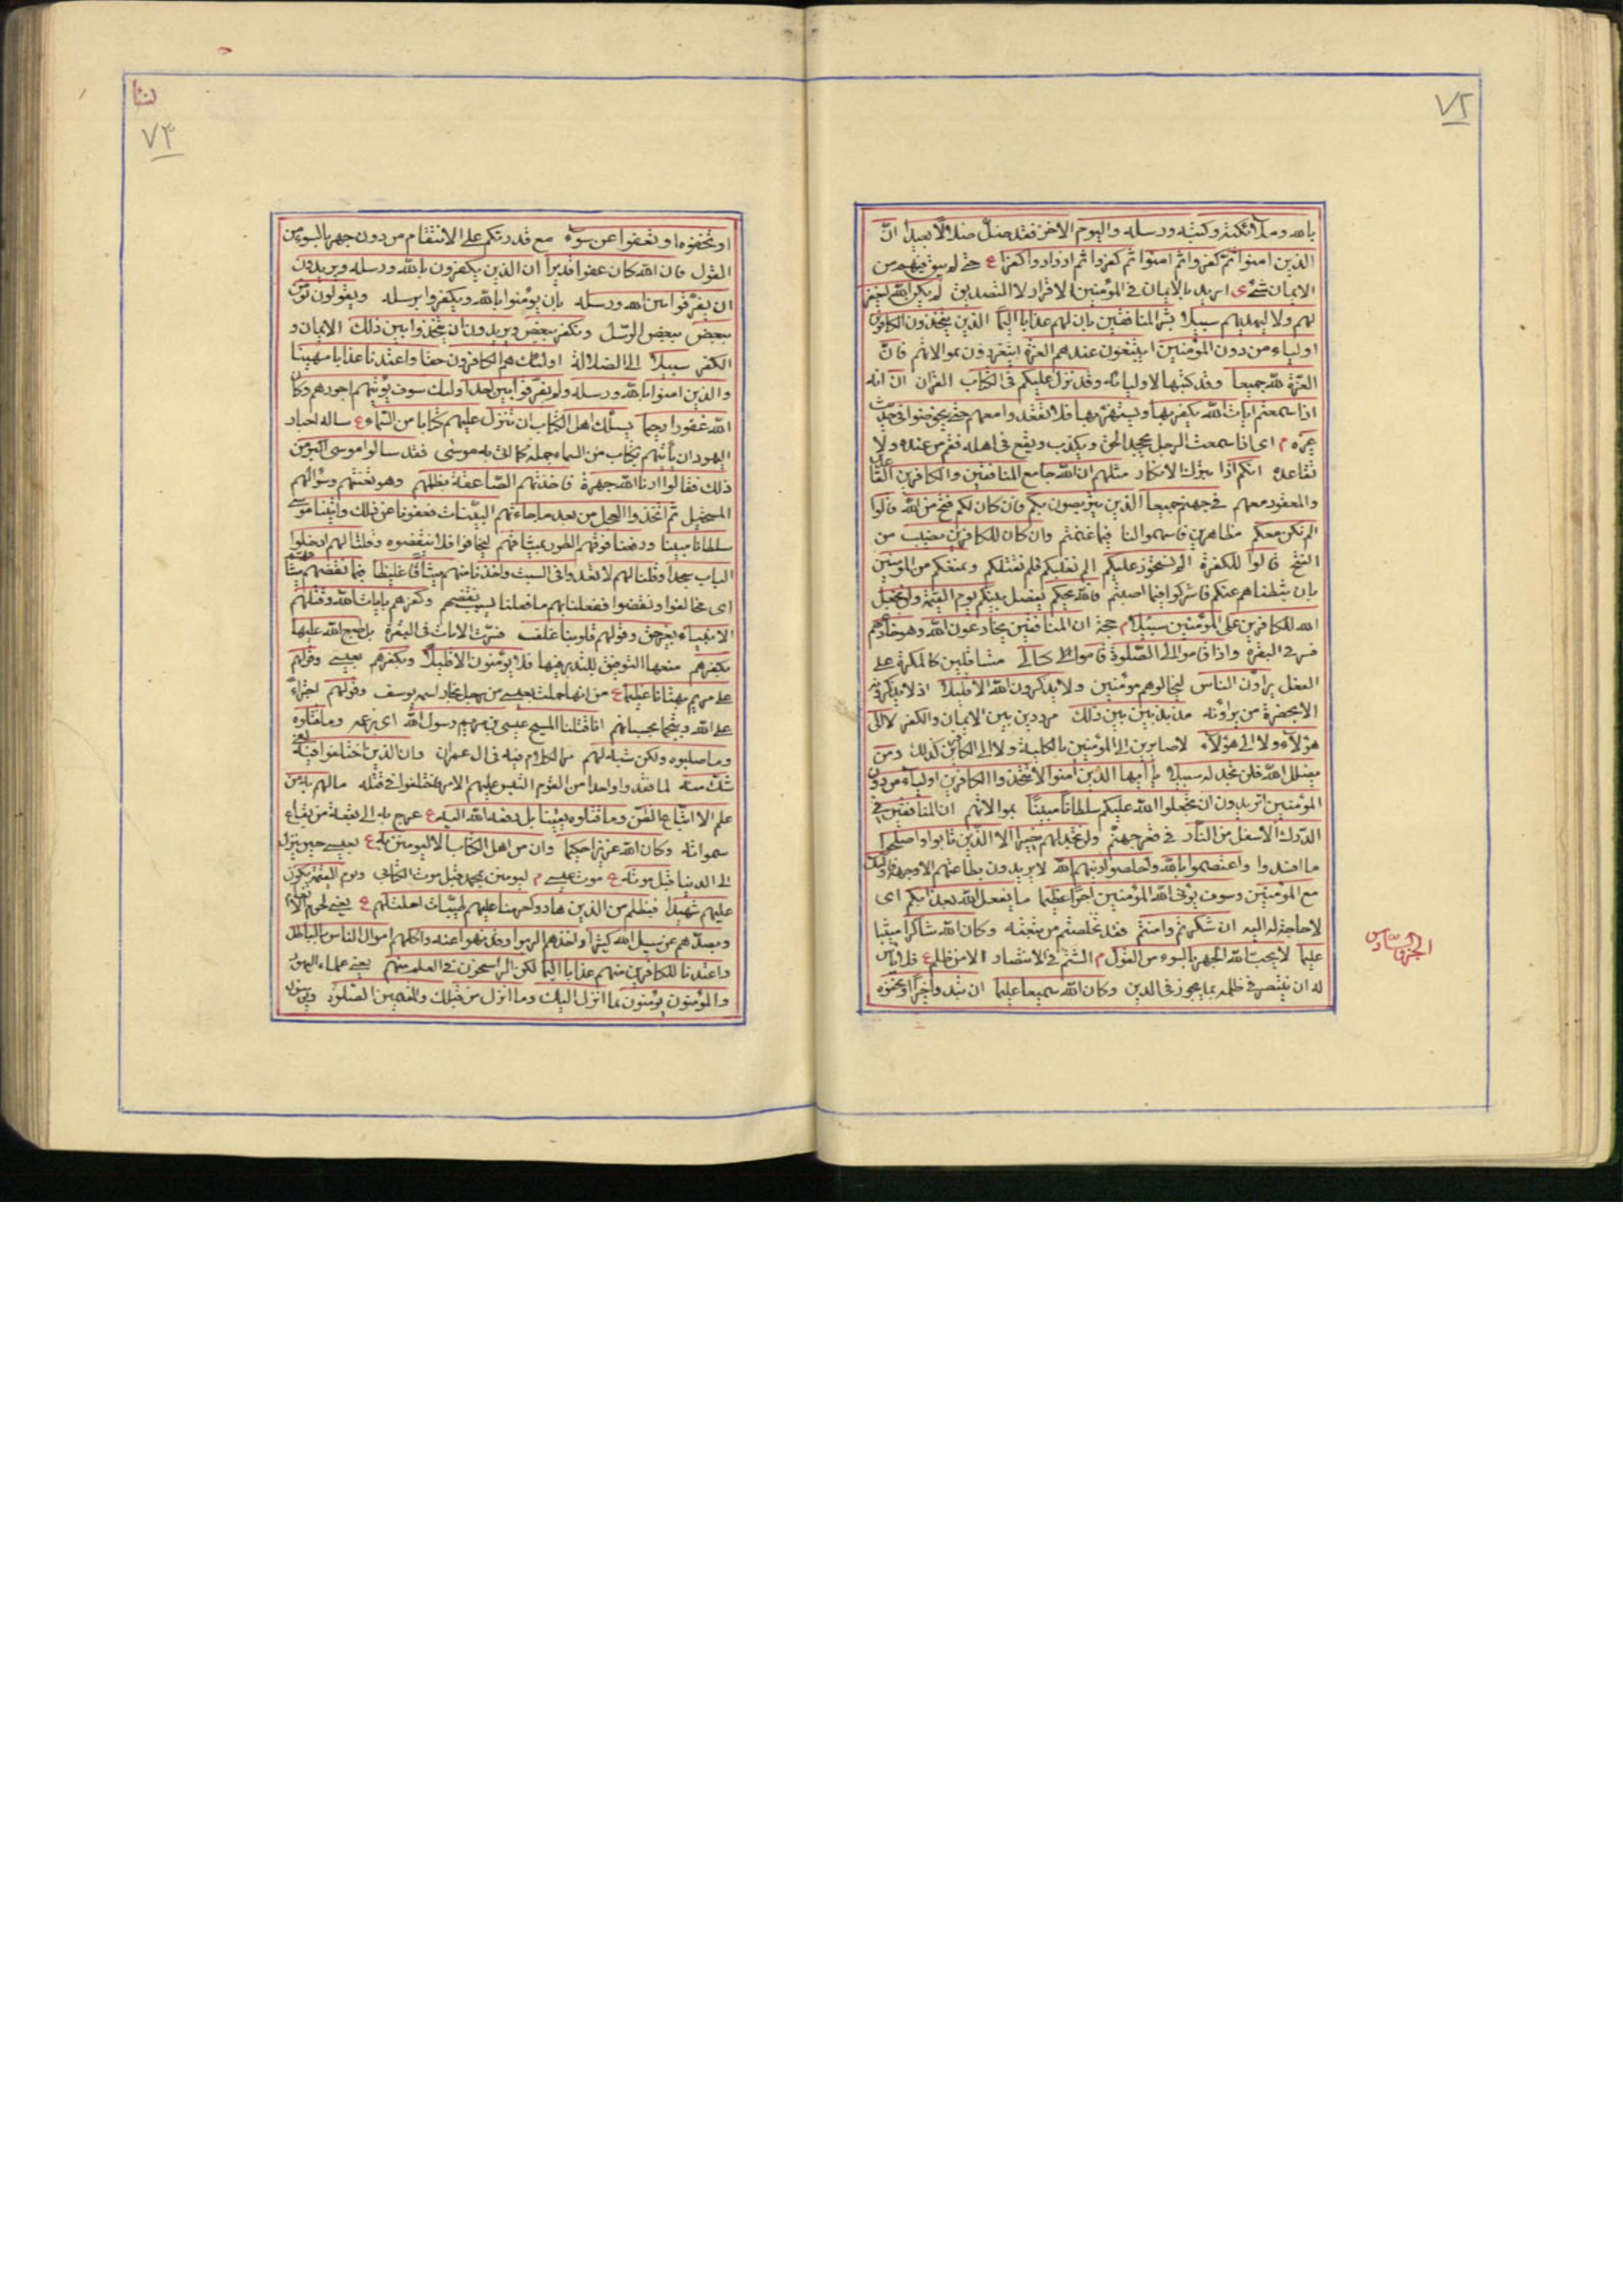 ٧٢
بالله وملائكته وكتبه ورسله واليوم الاخر فقد ضلّ ضلالا بعيدا انّ
الذين امنوا ثمّ كفروا ثم امنوا ثم كفروا ثم ازدادوا كفرا ع حتى لم يبق فيهم من
الايمان شئ ى اريد بالايمان فى المؤمنين الاقرار لا التصديق لم يكن الله ليغفر
لهم ولا ليهديهم سبيلا بشر المنافقين بان لهم عذابا اليما الذين يتخذون الكافرين
اولياء من دون المؤمنين ايبتغون عندهم العزة ايتعززون بموالاتهم فانّ
العزّة لله جميعا وقد كتبها لاوليائه وقد نزل عليكم فى الكتاب القران ان انه
اذا سمعتم ايات الله يكفر بها ويستهزء بها فلا تقعدوا معهم حتى يخوضوا فى حديث
غيره م اى اذا سمعت الرجل يجحد الحق ويكذب ويقع فى اهله فقم من عنده ولا
تقاعده انكم اذا بترك الانكار مثلهم ان الله جامع المنافقين والكافرين القاعدين
والمقعود معهم فى جهنم جميعا الذين يتربصون بكم فان كان لكم فتح من الله قالوا
الم نكن معكم مظاهرين فاسهموا لنا فيما غنمتم وان كان للكافرين نصيب من
الفتح قالوا للكفرة الم نستحوذ عليكم الم نغلبكم فلم نقتلكم ونمنعكم من المؤمنين
بان ثبطناهم عنكم فاشركوا فيما اصبتم فالله يحكم يفصل بينكم يوم القيمة ولن يجعل
الله للكافرين على المؤمنين سبيلا م حجة ان المنافقين يخادعون الله وهو خادعهم
فسر فى البقرة واذا قاموا الى الصّلوة قاموا كسالى متثاقلين كالمكره على
الفعل يراؤن الناس ليخالوهم مؤمنين ولا يذكرون الله الا قليلا اذ لا يذكرونه
الا بحضرة من يراؤنه مذبذبين بين ذلك مرددين بين الايمان والكفر لا الى
هؤلاء ولا الى هؤلاء لا صايرين الى المؤمنين بالكلية ولا الى الكافرين كذلك ومن
يضلل الله فلن تجد له سبيلا يا ايها الذين امنوا لا تتخذوا الكافرين اولياء من دون
المؤمنين اتريدون ان تجعلوا لله عليكم سلطانا مبينا بموالاتهم ان المنافقين فى
الدّرك الاسفل من النّار فى قعر جهنّم ولن تجد لهم نصيرا الا الذين تابوا واصلحوا
ما افسدوا واعتصموا بالله واخلصوا دينهم لله لا يريدون بطاعتهم الا وجهه فاولئك
مع المؤمنين وسوف يؤتى الله المؤمنين اجرا عظيما ما يفعل الله بعذابكم اى
لا حاجة له اليه ان شكرتم وامنتم فقد تخلصتم من نقمته وكان الله شاكرا مثيبا
عليما لا يحب الله الجهر بالسوء من القول م الشتم فى الانتصار الا من ظلم ع فلا باس
له ان ينتصر فى ظلمه بما يجوز فى الدين وكان الله سميعا عليما ان تبدوا خيرا او تخفوه
الجزء السادس
النسا
٧٣
او تخفوه او تعفوا عن سوء مع قدرتكم على الانتقام من دون جهر بالسوء من
القول فان الله كان عفوا قديرا ان الذين يكفرون بالله ورسله ويريدون
ان يفرّقوا بين الله ورسله بان يؤمنوا بالله ويكفروا برسله ويقولون نؤمن
ببعض ببعض الرّسل ونكفر ببعض ويريدون ان يتخذوا بين ذلك الايمان و
الكفر سبيلا الى الضلالة اولئك هم الكافرون حقا واعتدنا عذابا مهينا
والذين امنوا بالله ورسله ولم يفرّقوا بين احد اولئك سوف يؤتيهم اجورهم وكان
الله غفورا رحيما يسئلك اهل الكتاب ان تنزل عليهم كتابا من السّماء ع ساله احبار
اليهود ان ياتيهم بكتاب من السماء جملة كما اتى به موسى فقد سالوا موسى اكبر من
ذلك فقالوا ارنا الله جهرة فاخذتهم الصّاعقة بظلمهم وهو تعنتهم وسؤالهم
المستحيل ثم اتخذوا العجل من بعد ما جاءتهم البيّنات فعفونا عن ذلك واتينا موسى
سلطانا مبينا ورفعنا فوقهم الطور بميثاقهم ليخافوا فلا ينقضوه وقلنا لهم ادخلوا
الباب سجدا وقلنا لهم لا تعدوا فى السبت واخذنا منهم ميثاقا غليظا فبما نقضهم ميثاقهم
اى فخالفوا ونقضوا ففعلنا بهم ما فعلنا بسبب نقضهم وكفرهم بايات الله وقتلهم
الانبياء بغير حق وقولهم قلوبنا غلف فسرت الايات فى البقرة بل طبع الله عليها
بكفرهم منعها التوفيق للتدبر فيها فلا يؤمنون الا قليلا وبكفرهم بعيسى وقولهم
على مريم بهتانا عظيما ع من انها حملت بعيسى من رجل نجار اسمه يوسف وقولهم اجتراء
على الله وتبجحا بحسبانهم انا قتلنا المسيح عيسى بن مريم رسول الله اى بزعمه وما قتلوه
وما صلبوه ولكن شبه لهم مر الكلام فيه فى ال عمران وان الذين اختلفوا فيه لفى
شك منه لما فقدوا واحدا من القوم التبس عليهم الامر فاختلفوا فى قتله ما لهم به من
علم الا اتّباع الظنّ وما قتلوه يقينا بل رفعه الله اليه ع عرج به الى بقعة من بقاع
سمواته وكان الله عزيزا حكيما وان من اهل الكتاب الا ليؤمنن به ع بعيسى حين ينزل
الى الدنيا قبل موته ع موت عيسى م ليؤمنن بمحمد قبل موت الكتابى ويوم القيمة يكون
عليهم شهيدا فبظلم من الذين هادوا حرمنا عليهم طيّبات احلت لهم ع يعنى لحوم الانعام
وبصدّهم عن سبيل الله كثيرا واخذهم الربوا وقد نهوا عنه واكلهم اموال الناس بالباطل
واعتدنا للكافرين منهم عذابا اليما لكن الراسخون فى العلم منهم يعنى علماء اليهود
والمؤمنون يؤمنون بما انزل اليك وما انزل من قبلك والمقيمين الصّلوة